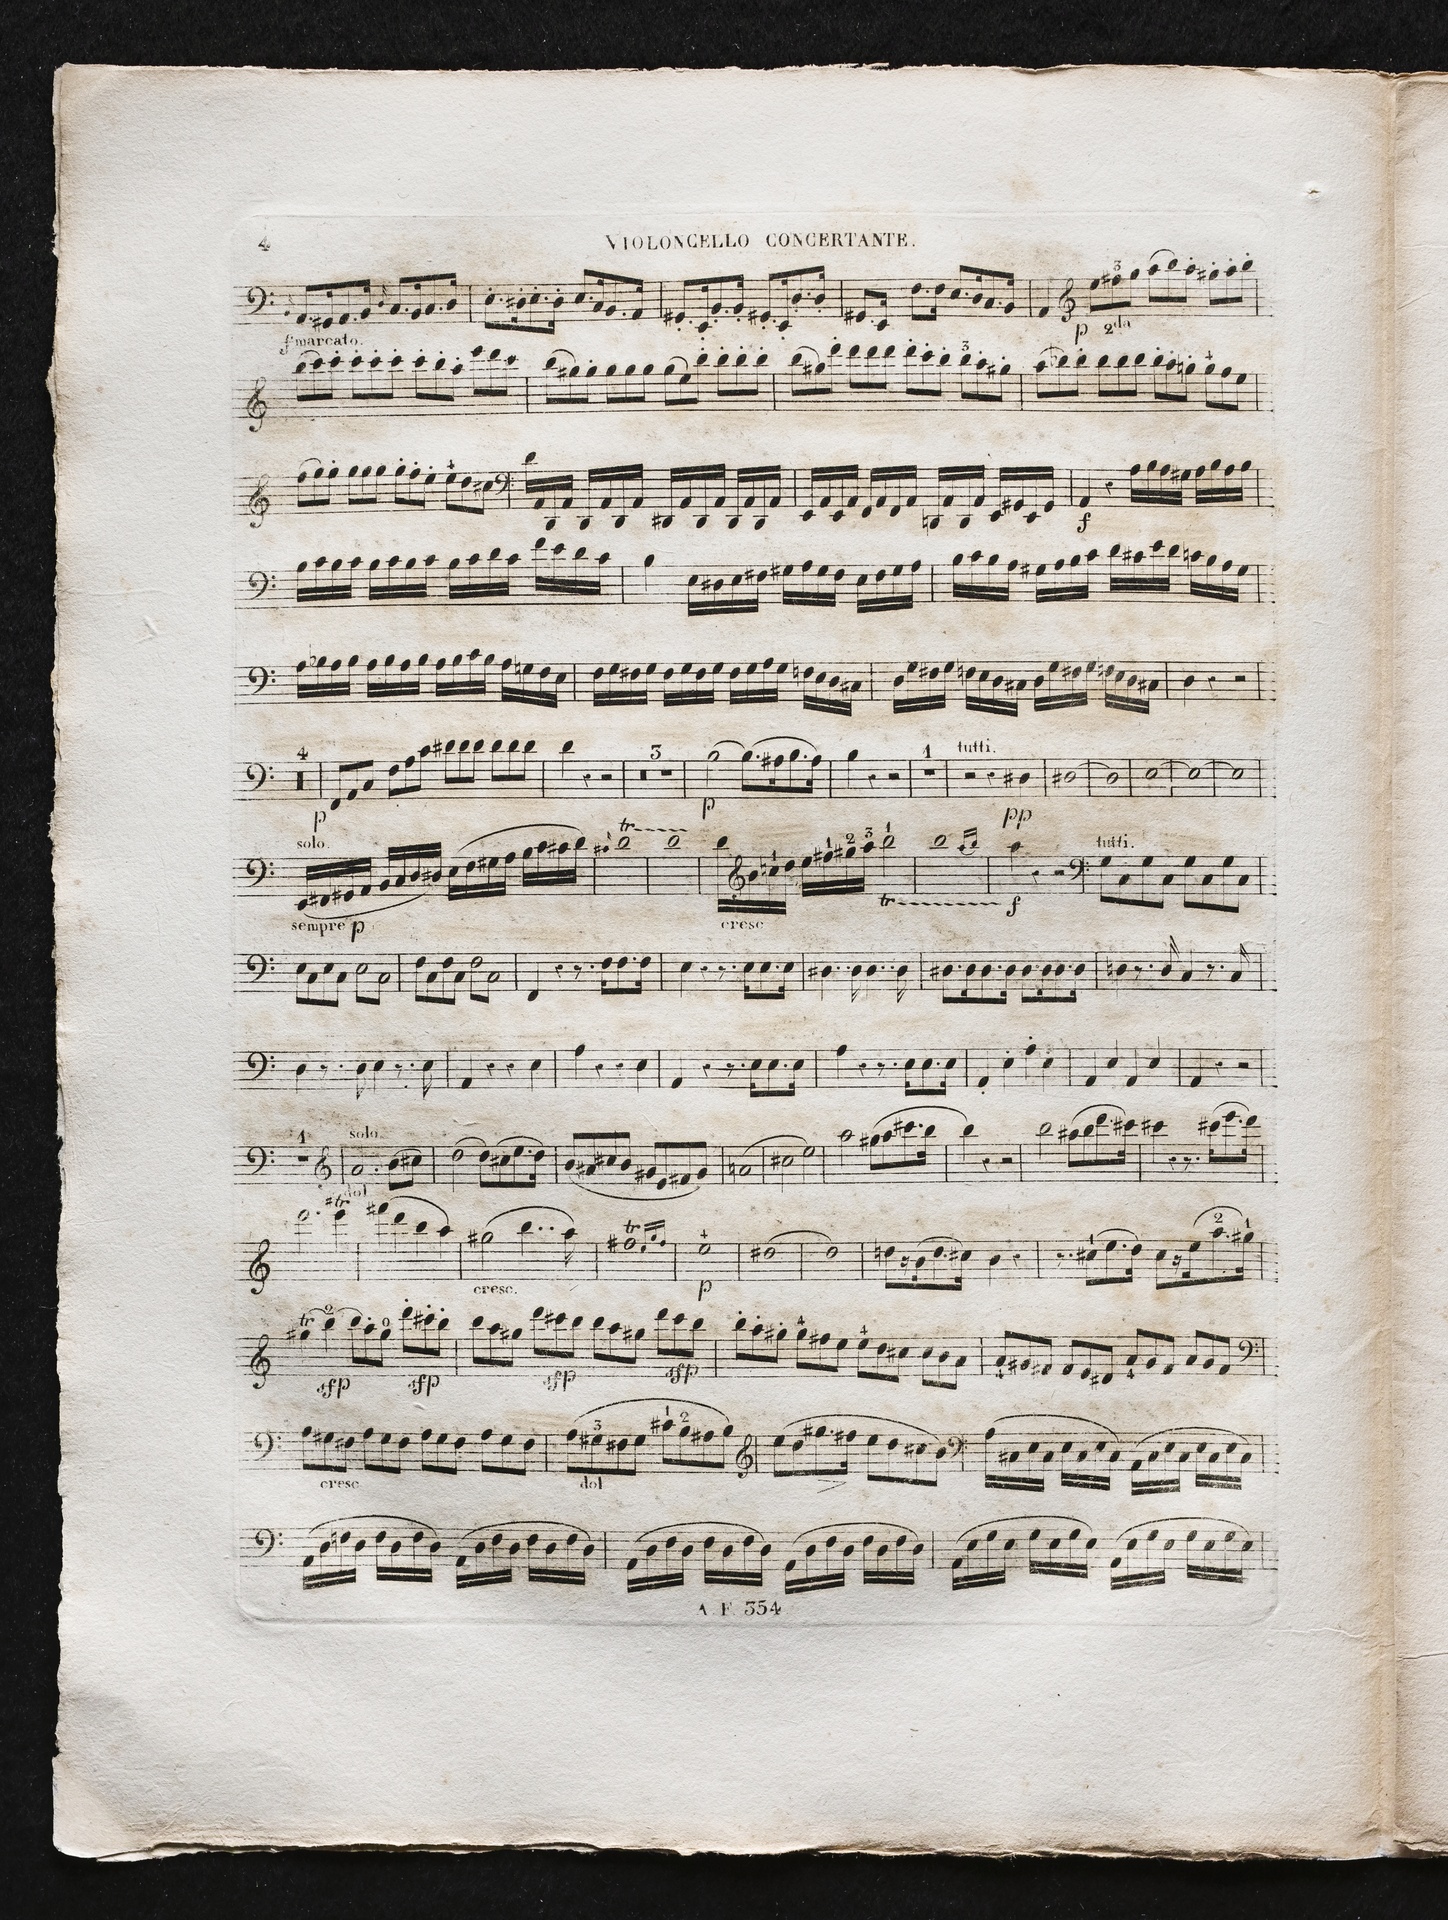 4
VIOLONCELLO CONCERTANTE.
f marcato.
3
p 2da
3
4
4
f
4 3 1 tutti.
p p pp
solo. tr 1 1 2 3 1 tutti.
sempre p cresc tr f
1 solo
dol
tr tr 4 1 2 1
cresc. p
tr 2 0 4 4
sfp sfp sfp sfp 4 4
3 1 2
cresc dol
A. F. 354